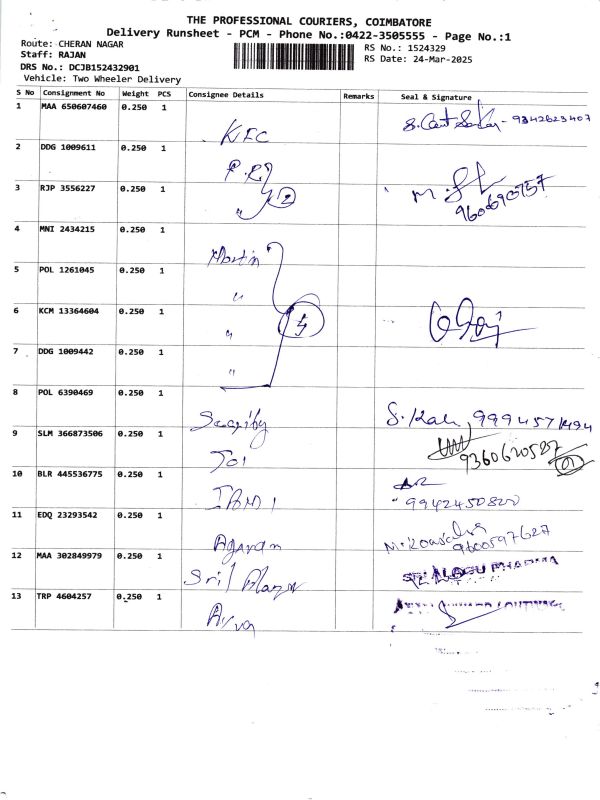 THE PROFESSIONAL COURIERS, COIMBATORE
Delivery Runsheet - PCM - Phone No.:0422-3505555 - Page No.:1
Route: CHERAN NAGAR
RS No.: 1524329
Staff: RAJAN
RS Date: 24-Mar-2025
DRS No.: DCJB152432901
Vehicle: Two Wheeler Delivery
S No Consignment No Weight PCS Consignee Details Remarks Seal & Signature
1 MAA 650607460 0.250 1 KFC 9342623407
2 DDG 1009611 0.250 1
3 RJP 3556227 0.250 1 " 2
4 MNI 2434215 0.250 1 Martin
5 POL 1261045 0.250 1 "
6 KCM 13364604 0.250 1 "
7 DDG 1009442 0.250 1 "
8 POL 6390469 0.250 1 Security
9 SLM 366873506 0.250 1
10 BLR 445536775 0.250 1 9942450820
11 EDQ 23293542 0.250 1 Agaram 9600597627
12 MAA 302849979 0.250 1 PHARMA
13 TRP 4604257 0.250 1